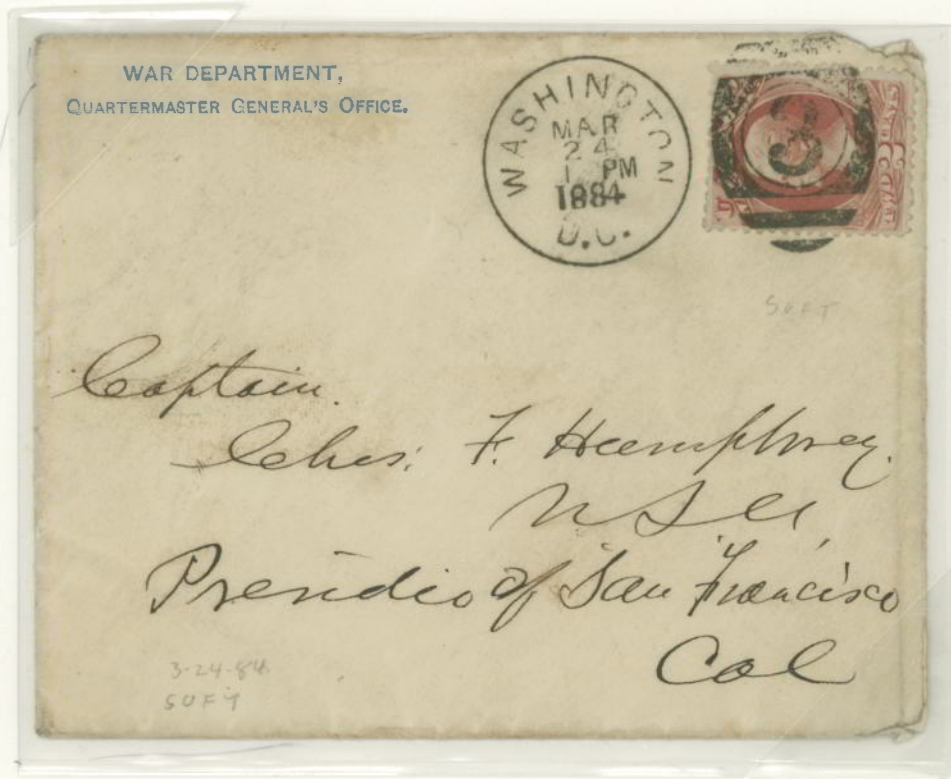 WAR DEPARTMENT,
QUARTERMASTER GENERAL'S OFFICE.
WASHINGTON
MAR
24
1 PM
1884
D.C.
Captain.
Chas. F. Humphrey.
U S A,
Presidio of San Francisco
Cal
3-24-84